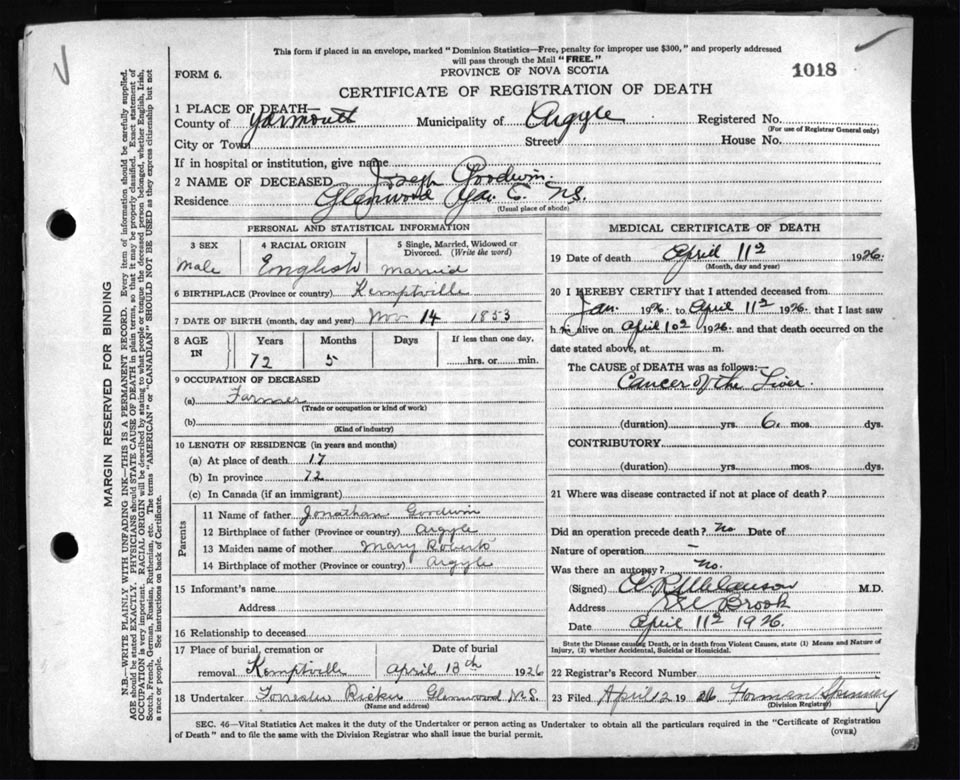 This form if placed in an envelope, marked "Dominion Statistics—Free, penalty for improper use $300," and properly addressed
will pass through the Mail "FREE."
FORM 6.
PROVINCE OF NOVA SCOTIA
1018
CERTIFICATE OF REGISTRATION OF DEATH
1 PLACE OF DEATH—
County of Yarmouth Municipality of Argyle Registered No.
(For use of Registrar General only)
City or Town Street House No.
If in hospital or institution, give name
2 NAME OF DECEASED Joseph Goodwin.
Residence Glenwood Yar. C. N.S.
(Usual place of abode)
PERSONAL AND STATISTICAL INFORMATION
3 SEX 4 RACIAL ORIGIN 5 Single, Married, Widowed or
Divorced. (Write the word)
Male English Married
6 BIRTHPLACE (Province or country) Kemptville
7 DATE OF BIRTH (month, day and year) Nov 14 1853
8 AGE IN Years Months Days If less than one day,
72 5 hrs. or min.
9 OCCUPATION OF DECEASED
(a) Farmer
(Trade or occupation or kind of work)
(b)
(Kind of industry)
10 LENGTH OF RESIDENCE (in years and months)
(a) At place of death 17
(b) In province 72
(c) In Canada (if an immigrant)
Parents
11 Name of father Jonathan Goodwin
12 Birthplace of father (Province or country) Argyle
13 Maiden name of mother Mary Roberts
14 Birthplace of mother (Province or country) Argyle
15 Informant's name
Address
16 Relationship to deceased
17 Place of burial, cremation or Date of burial
removal Kemptville April 13th 1926
18 Undertaker Glenwood N.S.
(Name and address)
MEDICAL CERTIFICATE OF DEATH
19 Date of death April 11th 1926.
(Month, day and year)
20 I HEREBY CERTIFY that I attended deceased from
Jan. 1926 to April 11th 1926, that I last saw
him alive on April 10th 1926, and that death occurred on the
date stated above, at m.
The CAUSE of DEATH was as follows:—
Cancer of the Liver.
(duration) yrs. 6. mos. dys.
CONTRIBUTORY
(duration) yrs. mos. dys.
21 Where was disease contracted if not at place of death?
Did an operation precede death? No Date of
Nature of operation —
Was there an autopsy? No.
(Signed) M.D.
Address Brook
Date April 11th 1926.
State the Disease causing Death, or in death from Violent Causes, state (1) Means and Nature of
Injury, (2) whether Accidental, Suicidal or Homicidal.
22 Registrar's Record Number
23 Filed April 12 1926 Forman Spinney
(Division Registrar)
SEC. 46—Vital Statistics Act makes it the duty of the Undertaker or person acting as Undertaker to obtain all the particulars required in the "Certificate of Registration
of Death" and to file the same with the Division Registrar who shall issue the burial permit.
(OVER)
MARGIN RESERVED FOR BINDING
N.B.—WRITE PLAINLY WITH UNFADING INK—THIS IS A PERMANENT RECORD. Every item of information should be carefully supplied.
AGE should be stated EXACTLY. PHYSICIANS should STATE CAUSE OF DEATH in plain terms, so that it may be properly classified. Exact statement of
OCCUPATION is very important. RACIAL ORIGIN will be described by stating to what people or tongue the deceased person belonged, whether English, Irish,
Scotch, French, German, Russian, Ruthenian, etc. The terms "AMERICAN" or "CANADIAN" SHOULD NOT BE USED as they express citizenship but not
a race or people. See instructions on back of Certificate.